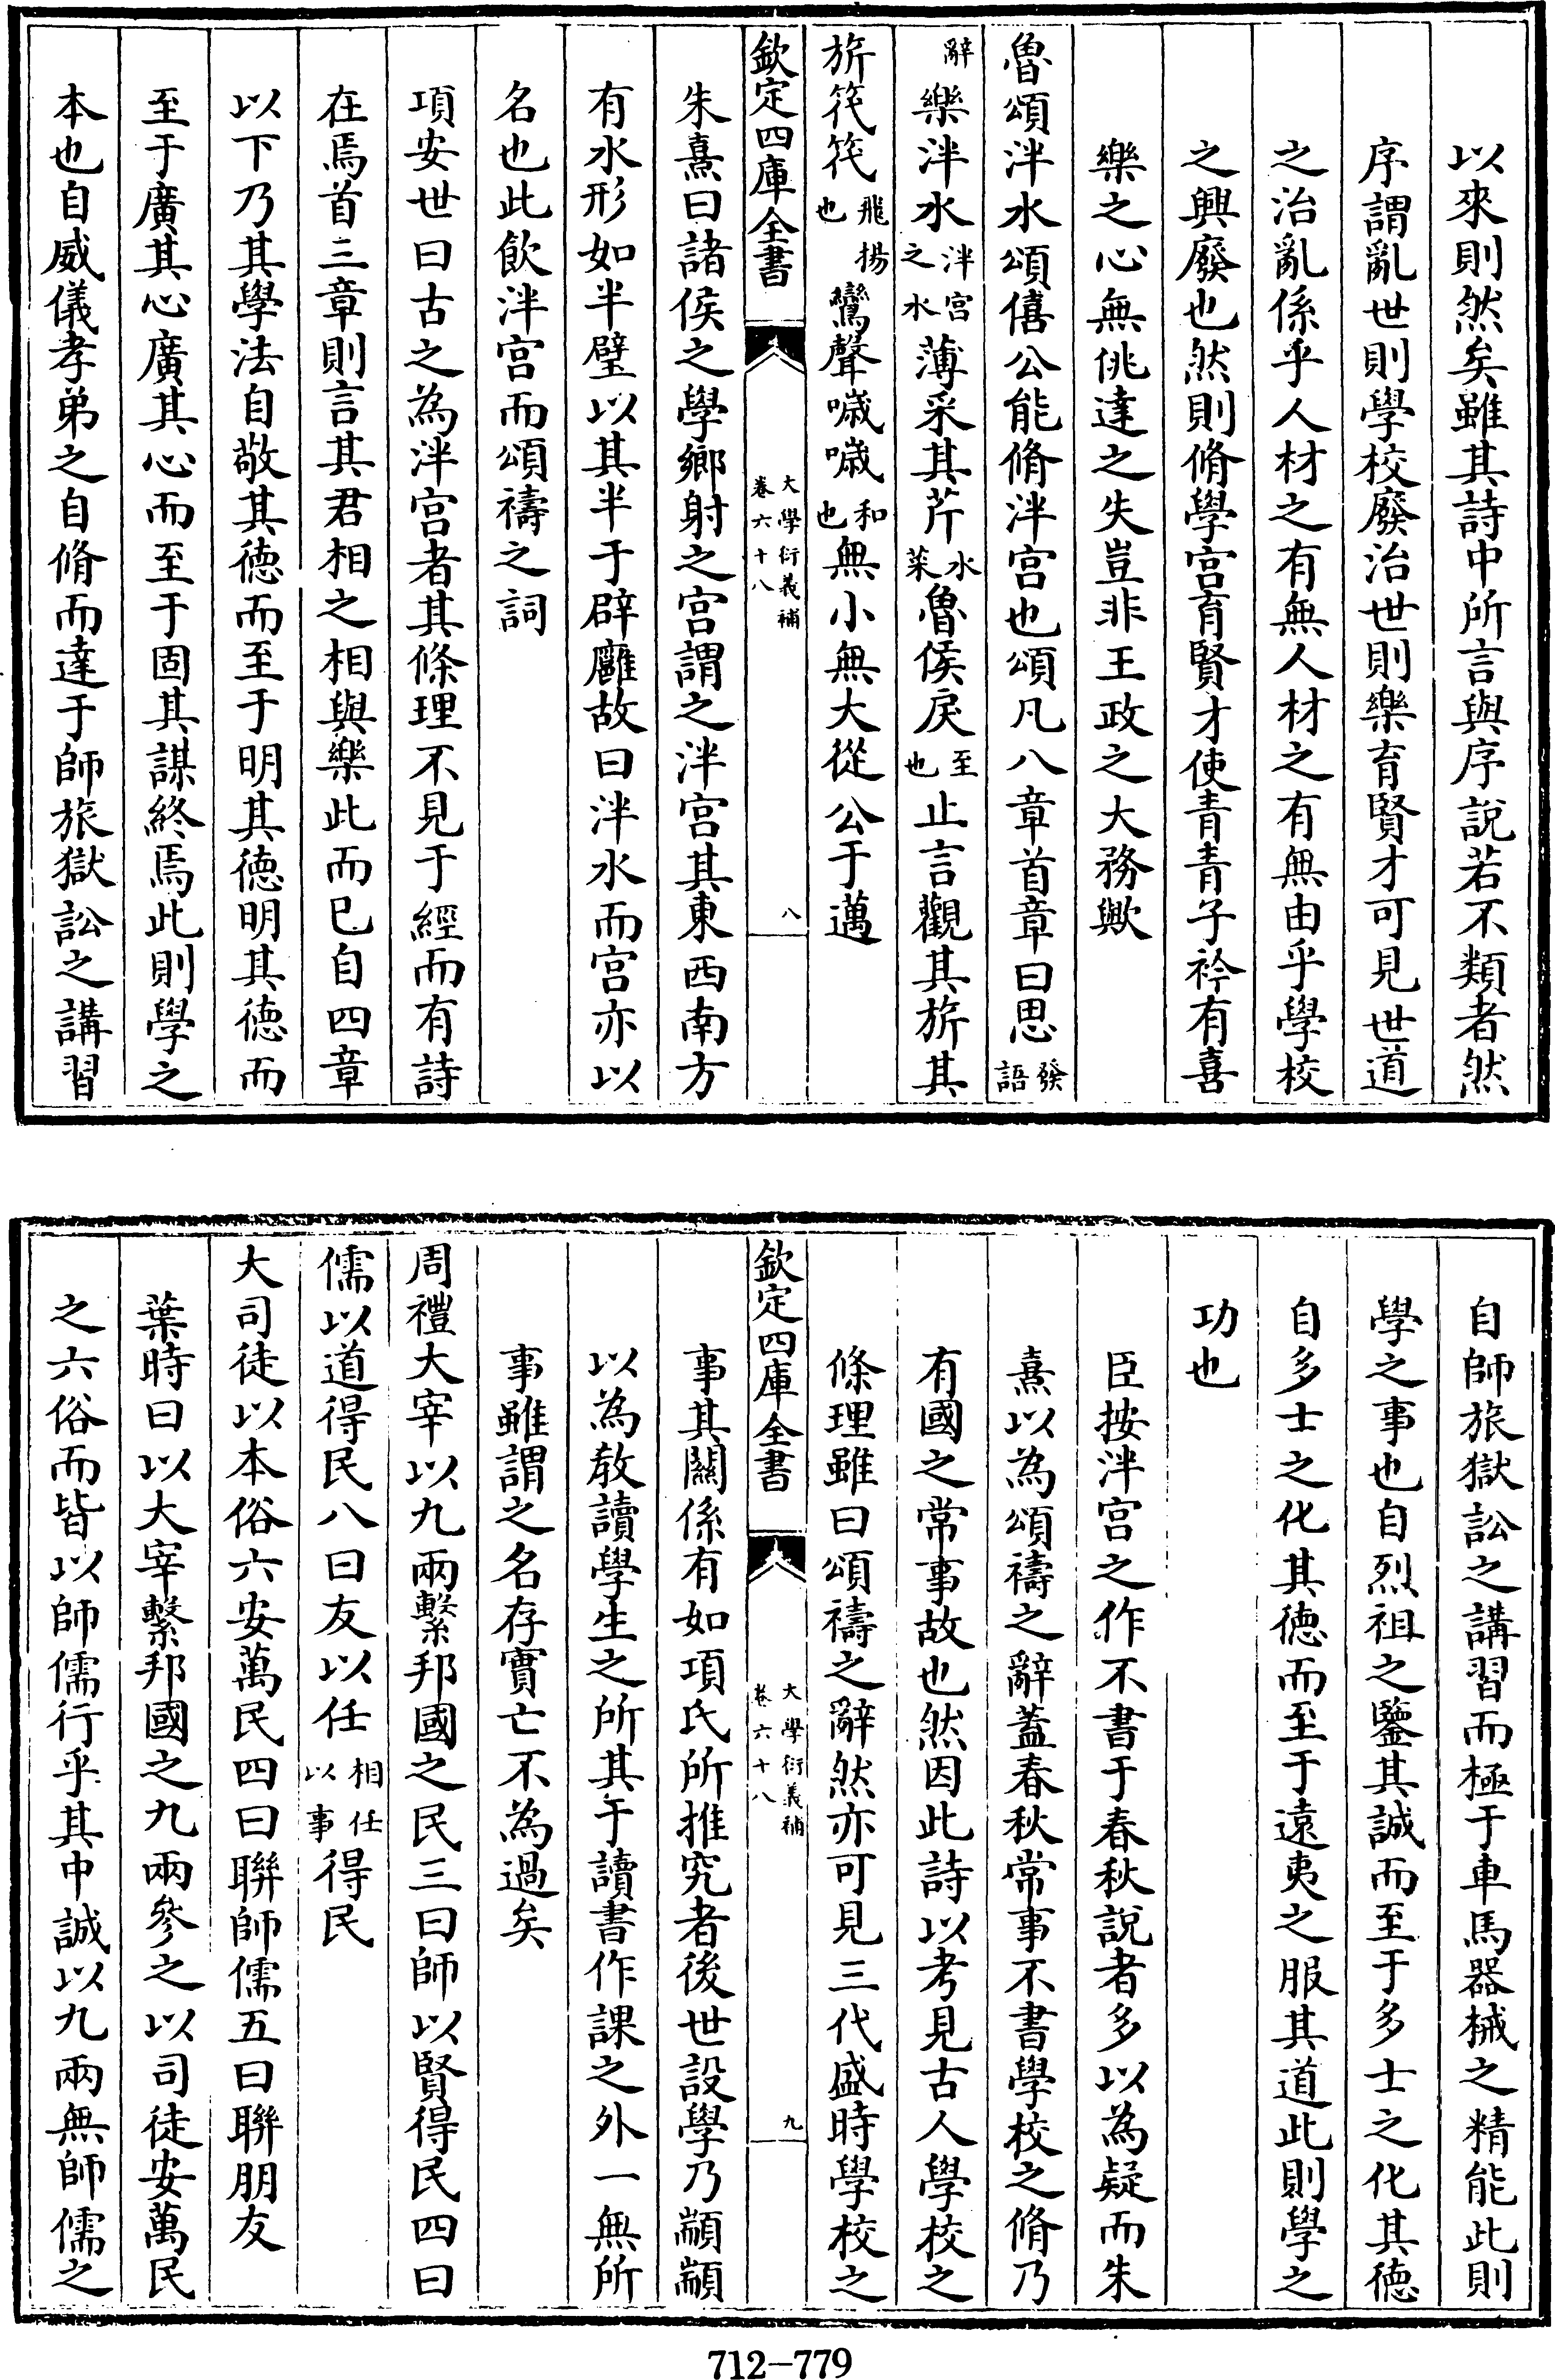 以來則然矣雖其詩中所言與序説若不類者然
序謂亂世則學校廢治世則樂育賢才可見世道
之治亂係乎人材之有無人材之有無由乎學校
之興廢也然則脩學宫育賢才使青青子衿有喜
樂之心無佻達之失豈非王政之大務歟
魯頌泮水頌僖公能脩泮宫也頌凡八章首章曰思發語
辭樂泮水泮宫之水薄采其芹水菜魯侯戾至也止言觀其旂其
旂筏筏飛揚也鸞聲噦噦和也無小無大從公于邁
欽定四庫全書
大學衍義補
卷六十八
八
朱熹曰諸侯之學鄉射之宫謂之泮宫其東西南方
有水形如半璧以其半于辟廱故曰泮水而宫亦以
名也此飲泮宫而頌禱之詞
項安世曰古之為泮宫者其條理不見于經而有詩
在焉首三章則言其君相之相與樂此而已自四章
以下乃其學法自敬其徳而至于明其徳明其徳而
至于廣其心廣其心而至于固其謀終焉此則學之
本也自威儀孝弟之自脩而達于師旅獄訟之講習
自師旅獄訟之講習而極于車馬器械之精能此則
學之事也自烈祖之鑒其誠而至于多士之化其徳
自多士之化其徳而至于遠夷之服其道此則學之
功也
臣按泮宫之作不書于春秋説者多以為疑而朱
熹以為頌禱之辭葢春秋常事不書學校之脩乃
有國之常事故也然因此詩以考見古人學校之
條理雖曰頌禱之辭然亦可見三代盛時學校之
欽定四庫全書
大學衍義補
卷六十八
九
事其關係有如項氏所推究者後世設學乃顓顓
以為教讀學生之所其于讀書作課之外一無所
事雖謂之名存實亡不為過矣
周禮大宰以九兩繫邦國之民三曰師以賢得民四曰
儒以道得民八曰友以任相任以事得民
大司徒以本俗六安萬民四曰聯師儒五曰聯朋友
葉時曰以大宰繫邦國之九兩參之以司徒安萬民
之六俗而皆以師儒行乎其中誠以九兩無師儒之
712-779